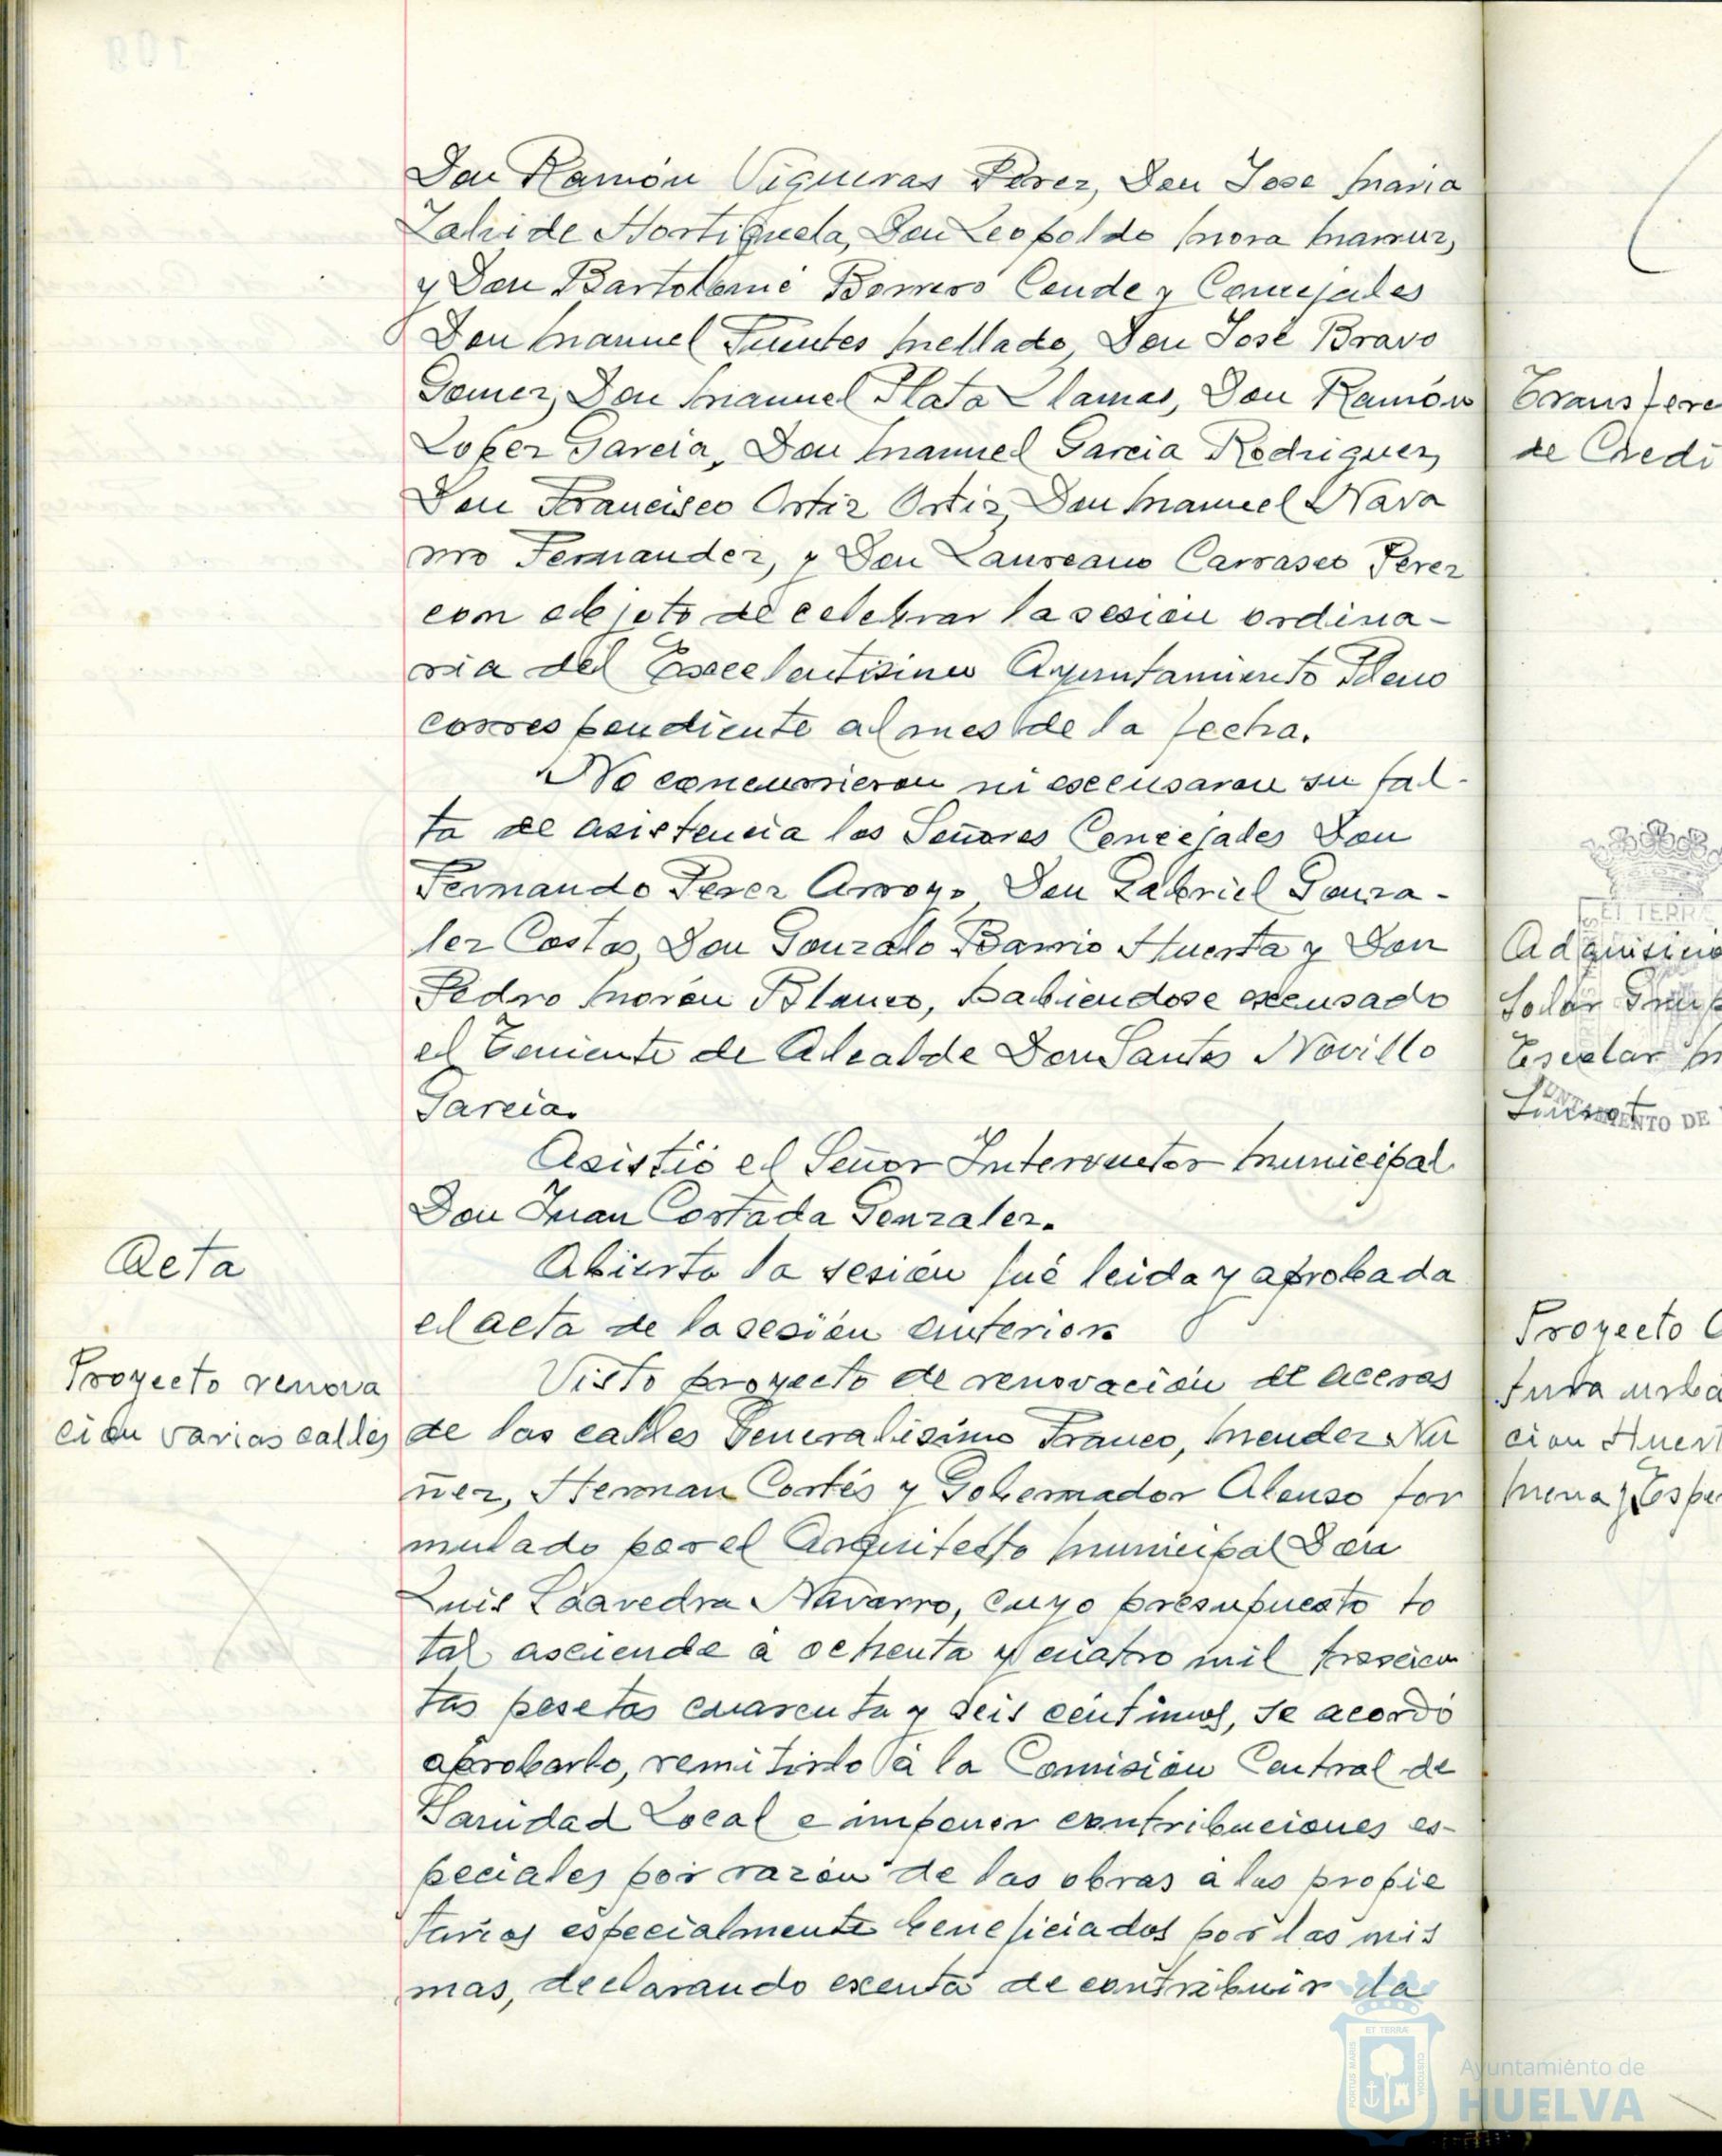 Don Ramón Vigueras Perez, Don Jose Maria
Zalvide Hortiguela, Don Leopoldo Mora
y Don Bartolomé Borrero Conde y Concejales
Don Manuel Fuentes Mellado, Don José Bravo
Gomez, Don Manuel Plata Llamas, Don Ramón
Lopez Garcia, Don Manuel Garcia Rodriguez,
Don Francisco Ortiz Ortiz, Don Manuel Nava
rro Fernandez, y Don Laureano Carrasco Perez
con objeto de celebrar la sesión ordina-
ria del Excelentisimo Ayuntamiento Pleno
correspondiente al mes de la fecha.
No concurrieron ni excusaron su fal-
ta de asistencia los Señores Concejales Don
Fernando Perez Arroyo, Don Gabriel Gonza-
lez Costa, Don Gonzalo Barrio Huerta y Don
Pedro Morón Blanco, habiendose excusado
el Teniente de Alcalde Don Santos Novillo
Garcia.
Asistió el Señor Interventor Municipal
Don Juan Costada Gonzalez.
Acta
Abierta la sesión fué leida y aprobada
el acta de la sesión anterior.
Proyecto renova
ción varias calles
Visto proyecto de renovación de aceras
de las calles Generalisimo Franco, Mendez Nu
ñez, Hernan Cortés y Gobernador Alonso for
mulado por el Arquitecto Municipal Don
Luis Saavedra Navarro, cuyo presupuesto to
tal asciende a ochenta y cuatro mil trescien
tas pesetas cuarenta y seis céntimos, se acordó
aprobarlo, remitirlo á la Comisión Central de
Sanidad Local e imponer contribuciones es-
peciales por razón de las obras a los propie
tarios especialmente beneficiados por las mis
mas, declarando exenta de contribuir la
Transfere
de Credi
ET TERRA
Adquisicio
Solar Grup
Escolar M
Siurot
AYUNTAMIENTO DE
Proyecto
tura urba
cion Huert
Mena y Espe
ET TERRA
PORTUS MARIS
CUSTODIA
Ayuntamiento de
HUELVA